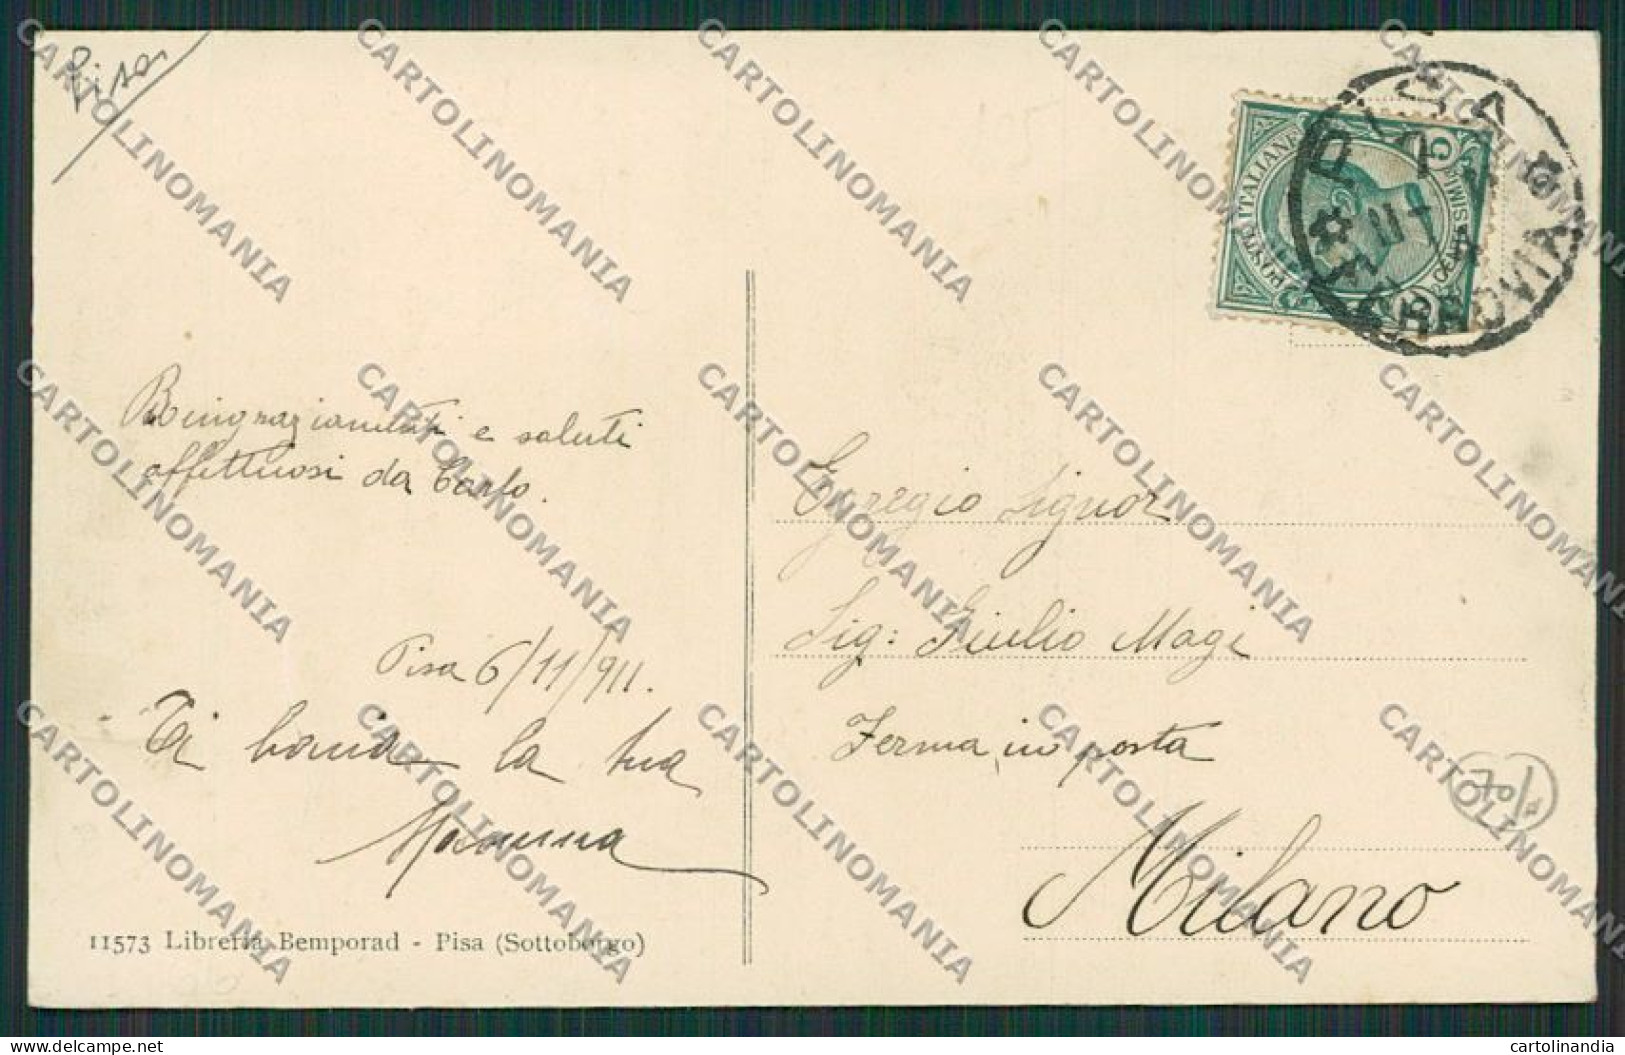 Pisa
POSTE ITALIANE
CENTESIMI 5
PISA
FERROVIA
Ringraziamenti e saluti
affettuosi da Carlo.
Pisa 6/11/911.
Ti bacia la tua
Mamma
11573 Libreria Bemporad - Pisa (Sottoborgo)
Egregio Signor
Sig: Giulio Magi
Ferma in posta
Milano
70/
CARTOLINOMANIA
delcampe.net
cartolinandia